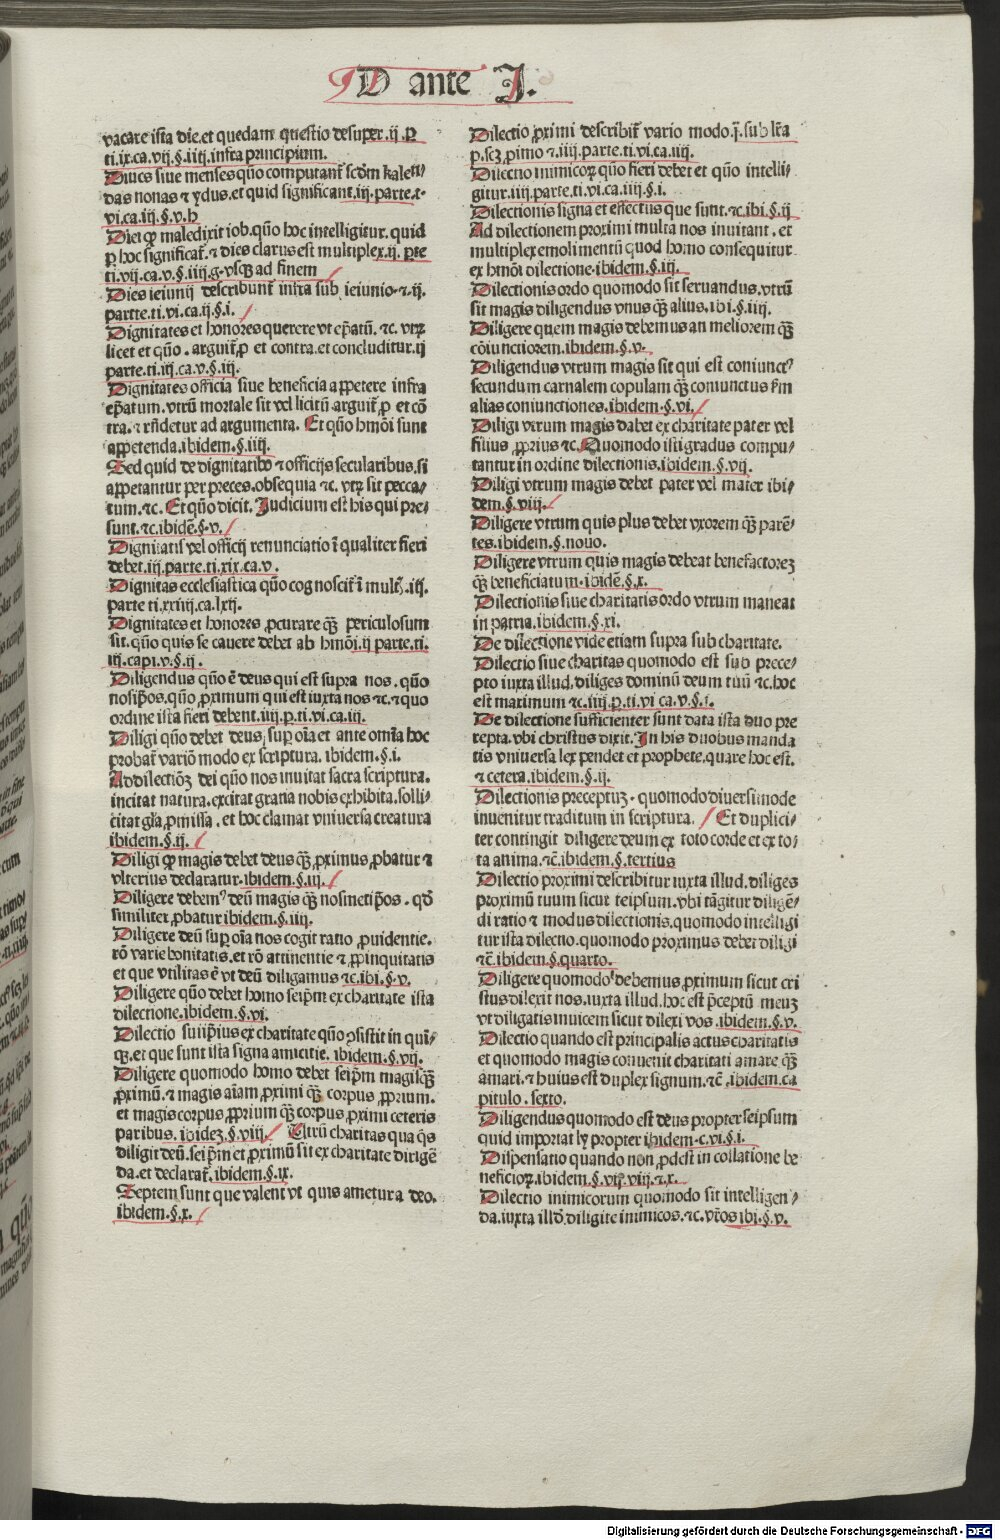 D ante J.
vacare ista die.et quedam questio desuper.ij.p̲
ti.ix.ca.vij.§.iiij.infra principium.
Dies siue menses qūo computant᷑ scd̄m kalen⸗
das nonas ⁊ ydus.et quid significant.iij.parte.t⸗
vi.ca.iij.§.v.h
Diei ꝙ maledixit iob.qūo hoc intelligitur.quid
ꝑ hoc significat᷑.⁊ dies clarus est multiplex.ij. p̄te
ti.vij.ca.v.§.iiij.g.vsꝗ ad finem
Dies ieiunij describunt᷑ infra sub ieiunio.⁊ ij.
partte.ti.vi.ca.ij.§.i.
Dignitates et honores querere vt ep̄atū. ⁊c. vtꝝ
licet et qūo.arguit᷑ ꝓ et contra.et concluditur.ij
parte.ti.iij.ca.v.§.iij.
Dignitates officia siue beneficia appetere infra
ep̄atum.vtrū mortale sit vel licitū.arguit᷑ ꝓ et cō
tra.⁊ rñdetur ad argumenta. Et qūo hmōi sunt
appetenda.ibidem.§.iiij.
Sed quid de dignitatibꝰ ⁊ officijs secularibus.si
appetantur per preces.obsequia ⁊c. vtꝝ sit pecca⸗
tum.⁊c. Et qūo dicit. Judicium est his qui pre⸗
sunt.⁊c.ibidē.§.v.
Dignitatis vel officij renunciatio ī qualiter fieri
debet.iij.parte.ti.xix.ca.v.
Dignitas ecclesiastica qūo cognoscit᷑ ī mult᷑.iij.
parte ti.xxiiij.ca.lxij.
Dignitates et honores ꝓcurare ꝙ̄ periculosum
sit.qūo quis se cauere debet ab hmōi.ij parte.ti.
iij.capi.v.§.ij.
Diligendus qūo ē deus qui est supra nos.qūo
nosip̄os.qūo ꝓximum qui est iuxta nos ⁊c.⁊ quo
ordine ista fieri debent.iiij.p.ti.vi.ca.iij.
Diligi qūo debet deus sup̲ oīa et ante omīa hoc
probat᷑ variō modo ex scriptura. ibidem.§.i.
Ad dilectiōꝫ dei qūo nos inuitat sacra scriptura.
incitat natura.excitat gratia nobis exhibita.solli⸗
citat gl̄a ꝓmissa.et hoc clamat vniuersa creatura
ibidem.§.ij.
Diligi ꝙ magis debet deus ꝙ̄ ꝓximus ꝓbatur ⁊
vlterius declaratur.ibidem.§.iij.
Diligere debemꝰ deū magis ꝙ̄ nosmetip̄os.qd̄
similiter ꝓbatur ibidem.§.iiij.
Diligere deū sup̲ oīa nos cogit ratio ꝓuidentie.
rō varie bonitatis.et rō attinentie ⁊ ꝓpinquitatis
et que vtilitas ē vt deū diligamus ⁊c.ibi.§.v.
Diligere qūo debet homo seip̄m ex charitate ista
dilectione.ibidem.§.vi.
Dilectio suiip̄ius ex charitate qūo ꝯsistit in quīꝗ⸗
ꝗ.et que sunt ista signa amicitie. ibidem.§.vij.
Diligere quomodo homo debet seip̄m magisꝙ̄
ꝓximū.⁊ magis aīam ꝓximi ꝙ̄ corpus ꝓprium.
et magis corpus ꝓprium ꝙ̄ corpus ꝓximi ceteris
paribus.ibideꝫ.§.viij Utrū charitas qua q̄s
diligit deū.seip̄m et ꝓximū sit ex charitate dirigē
da.et declarat᷑.ibidem.§.ix.
Septem sunt que valent vt quis ametura deo.
ibidem.§.x.
Dilectio ꝓximi describit᷑ vario modo.j̄.sub lr̄a
p.scꝫ ꝓimo ⁊.iiij.parte.ti.vi.ca.iiij.
Dilectio inimicoꝝ qūo fieri debet et qūo intelli⸗
gitur.iiij.parte.ti.vi.ca.iiij.§.i.
Dilectionis signa et effectus que sunt.⁊c.ibi.§.ij
Ad dilectionem proximi multa nos inuitant.et
multiplex emolimentū quod homo consequitur
ex hmōi dilectione.ibidem.§.iij.
Dilectionis ordo quomodo sit seruandus.vtrū
sit magis diligendus vnus ꝙ̄ alius.ibi.§.iiij.
Diligere quem magis debemus an meliorem ꝙ̄
cōiunctiorem.ibidem.§.v.
Diligendus vtrum magis sit qui est coniunctꝰ
secundum carnalem copulam ꝙ̄ coniunctus s̄m
alias coniunctiones.ibidem.§.vi.
Diligi vtrum magis dabet ex charitate pater vel
filius ꝓprius ⁊c. Quomodo isti gradus compu⸗
tantur in ordine dilectionis.ibidem.§.vij.
Diligi vtrum magis debet pater vel mater ibi⸗
dem.§.viij.
Diligere vtrum quis plus debet vxorem ꝙ̄ parē⸗
tes.ibidem.§.nouo.
Diligere vtrum quis magis debeat benefactoreꝫ
ꝙ̄ beneficiatum.ibidē.§.x.
Dilectionis siue charitatis ordo vtrum maneat
in patria.ibidem.§.xi.
De dilectione vide etiam supra sub charitate.
Dilectio siue charitas quomodo est sub prece⸗
pto iuxta illud.diliges dominū deum tuū ⁊c.hoc
est maximum ⁊c.iiij.p.ti.vi ca.v.§.i.
De dilectione sufficienter sunt data ista duo pre
cepta.vbi christus dixit. In his duobus manda
tis vniuersa lex pendet et prophete.quare hoc est.
⁊ cetera.ibidem.§.ij.
Dilectionis preceptuꝫ.quomodo diuersimode
inuenitur traditum in scriptura. Et duplici⸗
ter contingit diligere deum ex toto corde et ex to⸗
ta anima.⁊c̄.ibidem.§.tertius
Dilectio proximi describitur iuxta illud.diliges
proximū tuum sicut teipsum.vbi tāgitur diligē⸗
di ratio ⁊ modus dilectionis.quomodo intelligi
tur ista dilectio.quomodo proximus debet diligi
⁊c̄.ibidem.§.quarto.
Diligere quomodo debemus ꝓximum sicut cri
stus dilexit nos.iuxta illud.hoc est p̄ceptū meuꝫ
vt diligatis inuicem sicut dilexi vos.ibidem.§.v.
Dilectio quando est principalis actus charitatis
et quomodo magis conuenit charitati amare ꝙ̄
amari.⁊ huius est duplex signum.⁊c̄.ibidem.ca
pitulo.sexto.
Diligendus quomodo est deus propter seipsum
quid importat ly propter ibidem.c.vi.§.i.
Dispensatio quando non ꝓdest in collatione be
neficioꝝ.ibidem.§.vij.viij.⁊.x.
Dilectio inimicorum quomodo sit intelligen⸗
da.iuxta illd̄.diligite inimicos.⁊c.vr̄os ibi.§.v.
Digitalisierung gefördert durch die Deutsche Forschungsgemeinschaft - DFG